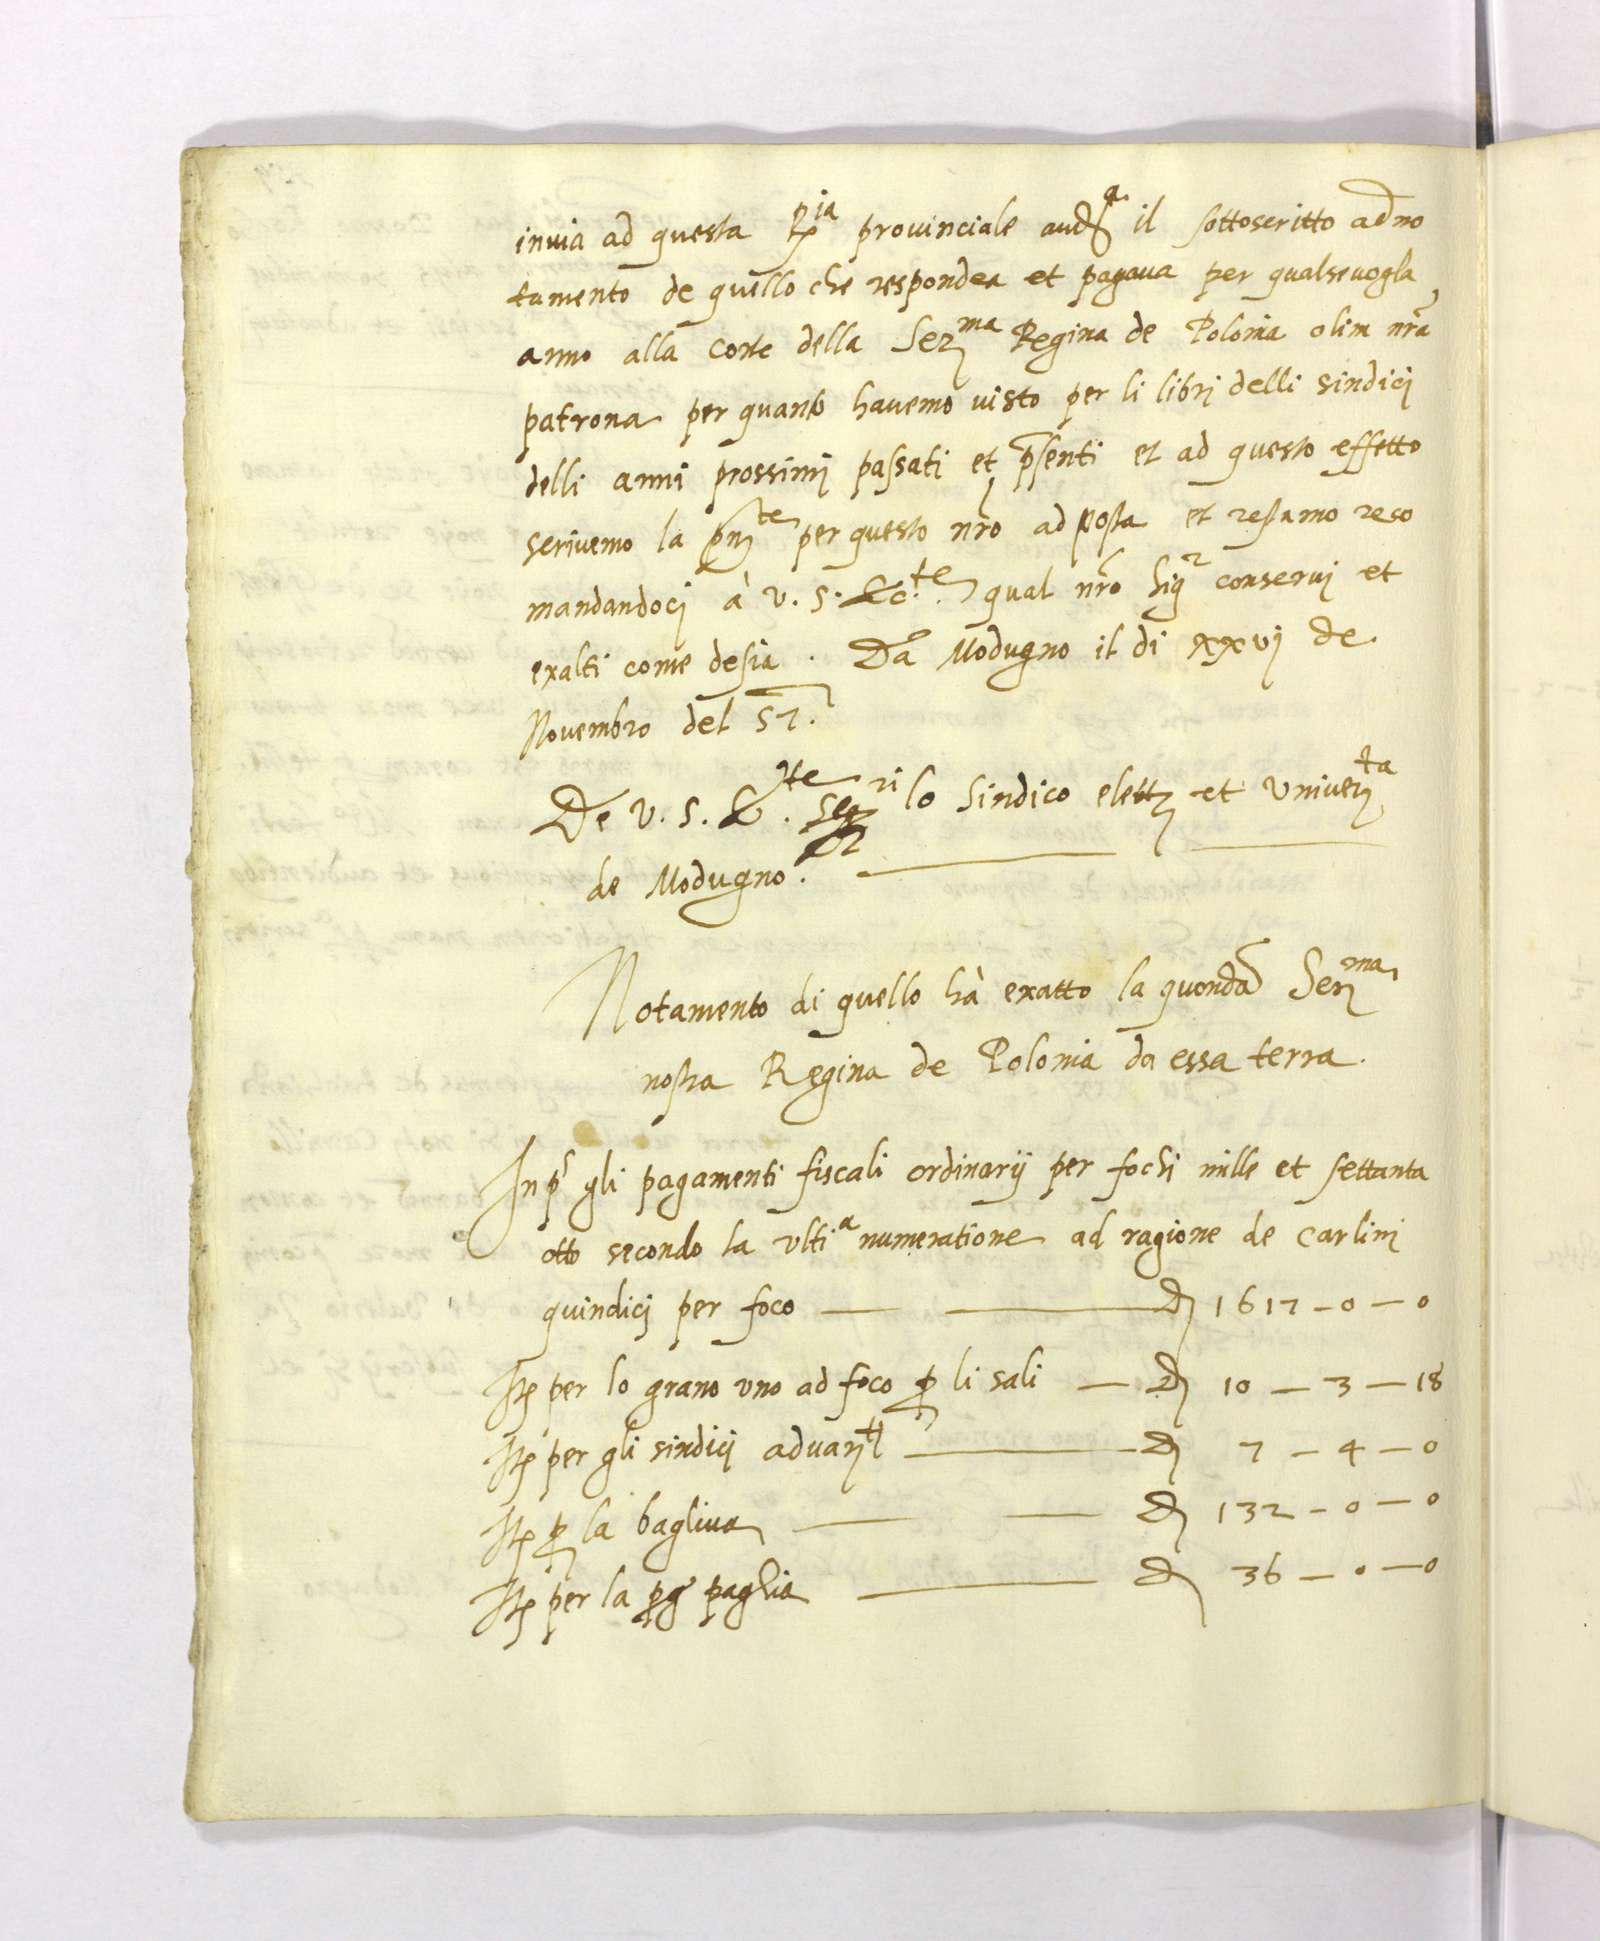 invia ad questa R.ia provinciale aud.a il sottoscritto adno
tamento de quello che respondea et pagava per qualsevogla
anno alla corte della Ser.ma Regina de Polonia olim nr̃a
patrona per quanto havemo visto per li libri delli sindici
delli anni prossimi passati et p̃senti et ad questo effetto
scrivemo la p̃nte per questo nr̃o ad posta et restamo reco
mandandoci à v. s. Ecc.te qual nr̃o Sig.r conservi et
exalti come desia. Dã Modugno il di xxvi de
Novembro del 57.
De v. s. Ecc.te ser.ri lo sindico eletti et Univer.ta
de Modugno.
Notamento di quello hà exatto la quondã Ser.ma
nostra Regina de Polonia da essa terra.
Inp.s gli pagamenti fiscali ordinarij per fochi mille et settanta
otto secondo la ulti.a numeratione ad ragione de carlini
quindici per foco — — D 1617 - 0 - 0
It per lo grano uno ad foco p li sali — D 10 - 3 - 18
It per gli sindici — D 7 - 4 - 0
It p la bagliva — — D 132 - 0 - 0
It per la paglia — D 36 - 0 - 0